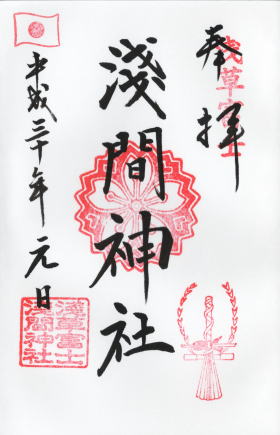 奉拝
浅草富士
淺間神社
平成三十年元日
淺草富士
淺間神社